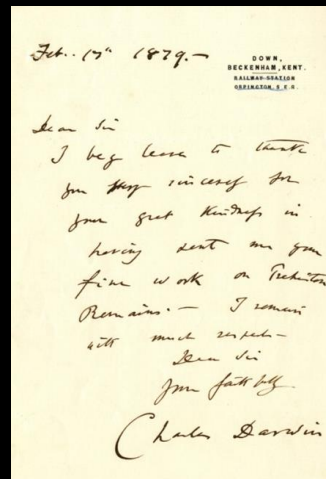 Feb. 17th 1879.—
DOWN,
BECKENHAM, KENT.
RAILWAY STATION
ORPINGTON. S.E.R.
Dear Sir
I beg leave to thank
you sincerely for
your great kindness in
having sent me your
fine work on
Remains.— I remain
with much respect—
Dear Sir
yours faithfully.
Charles Darwin